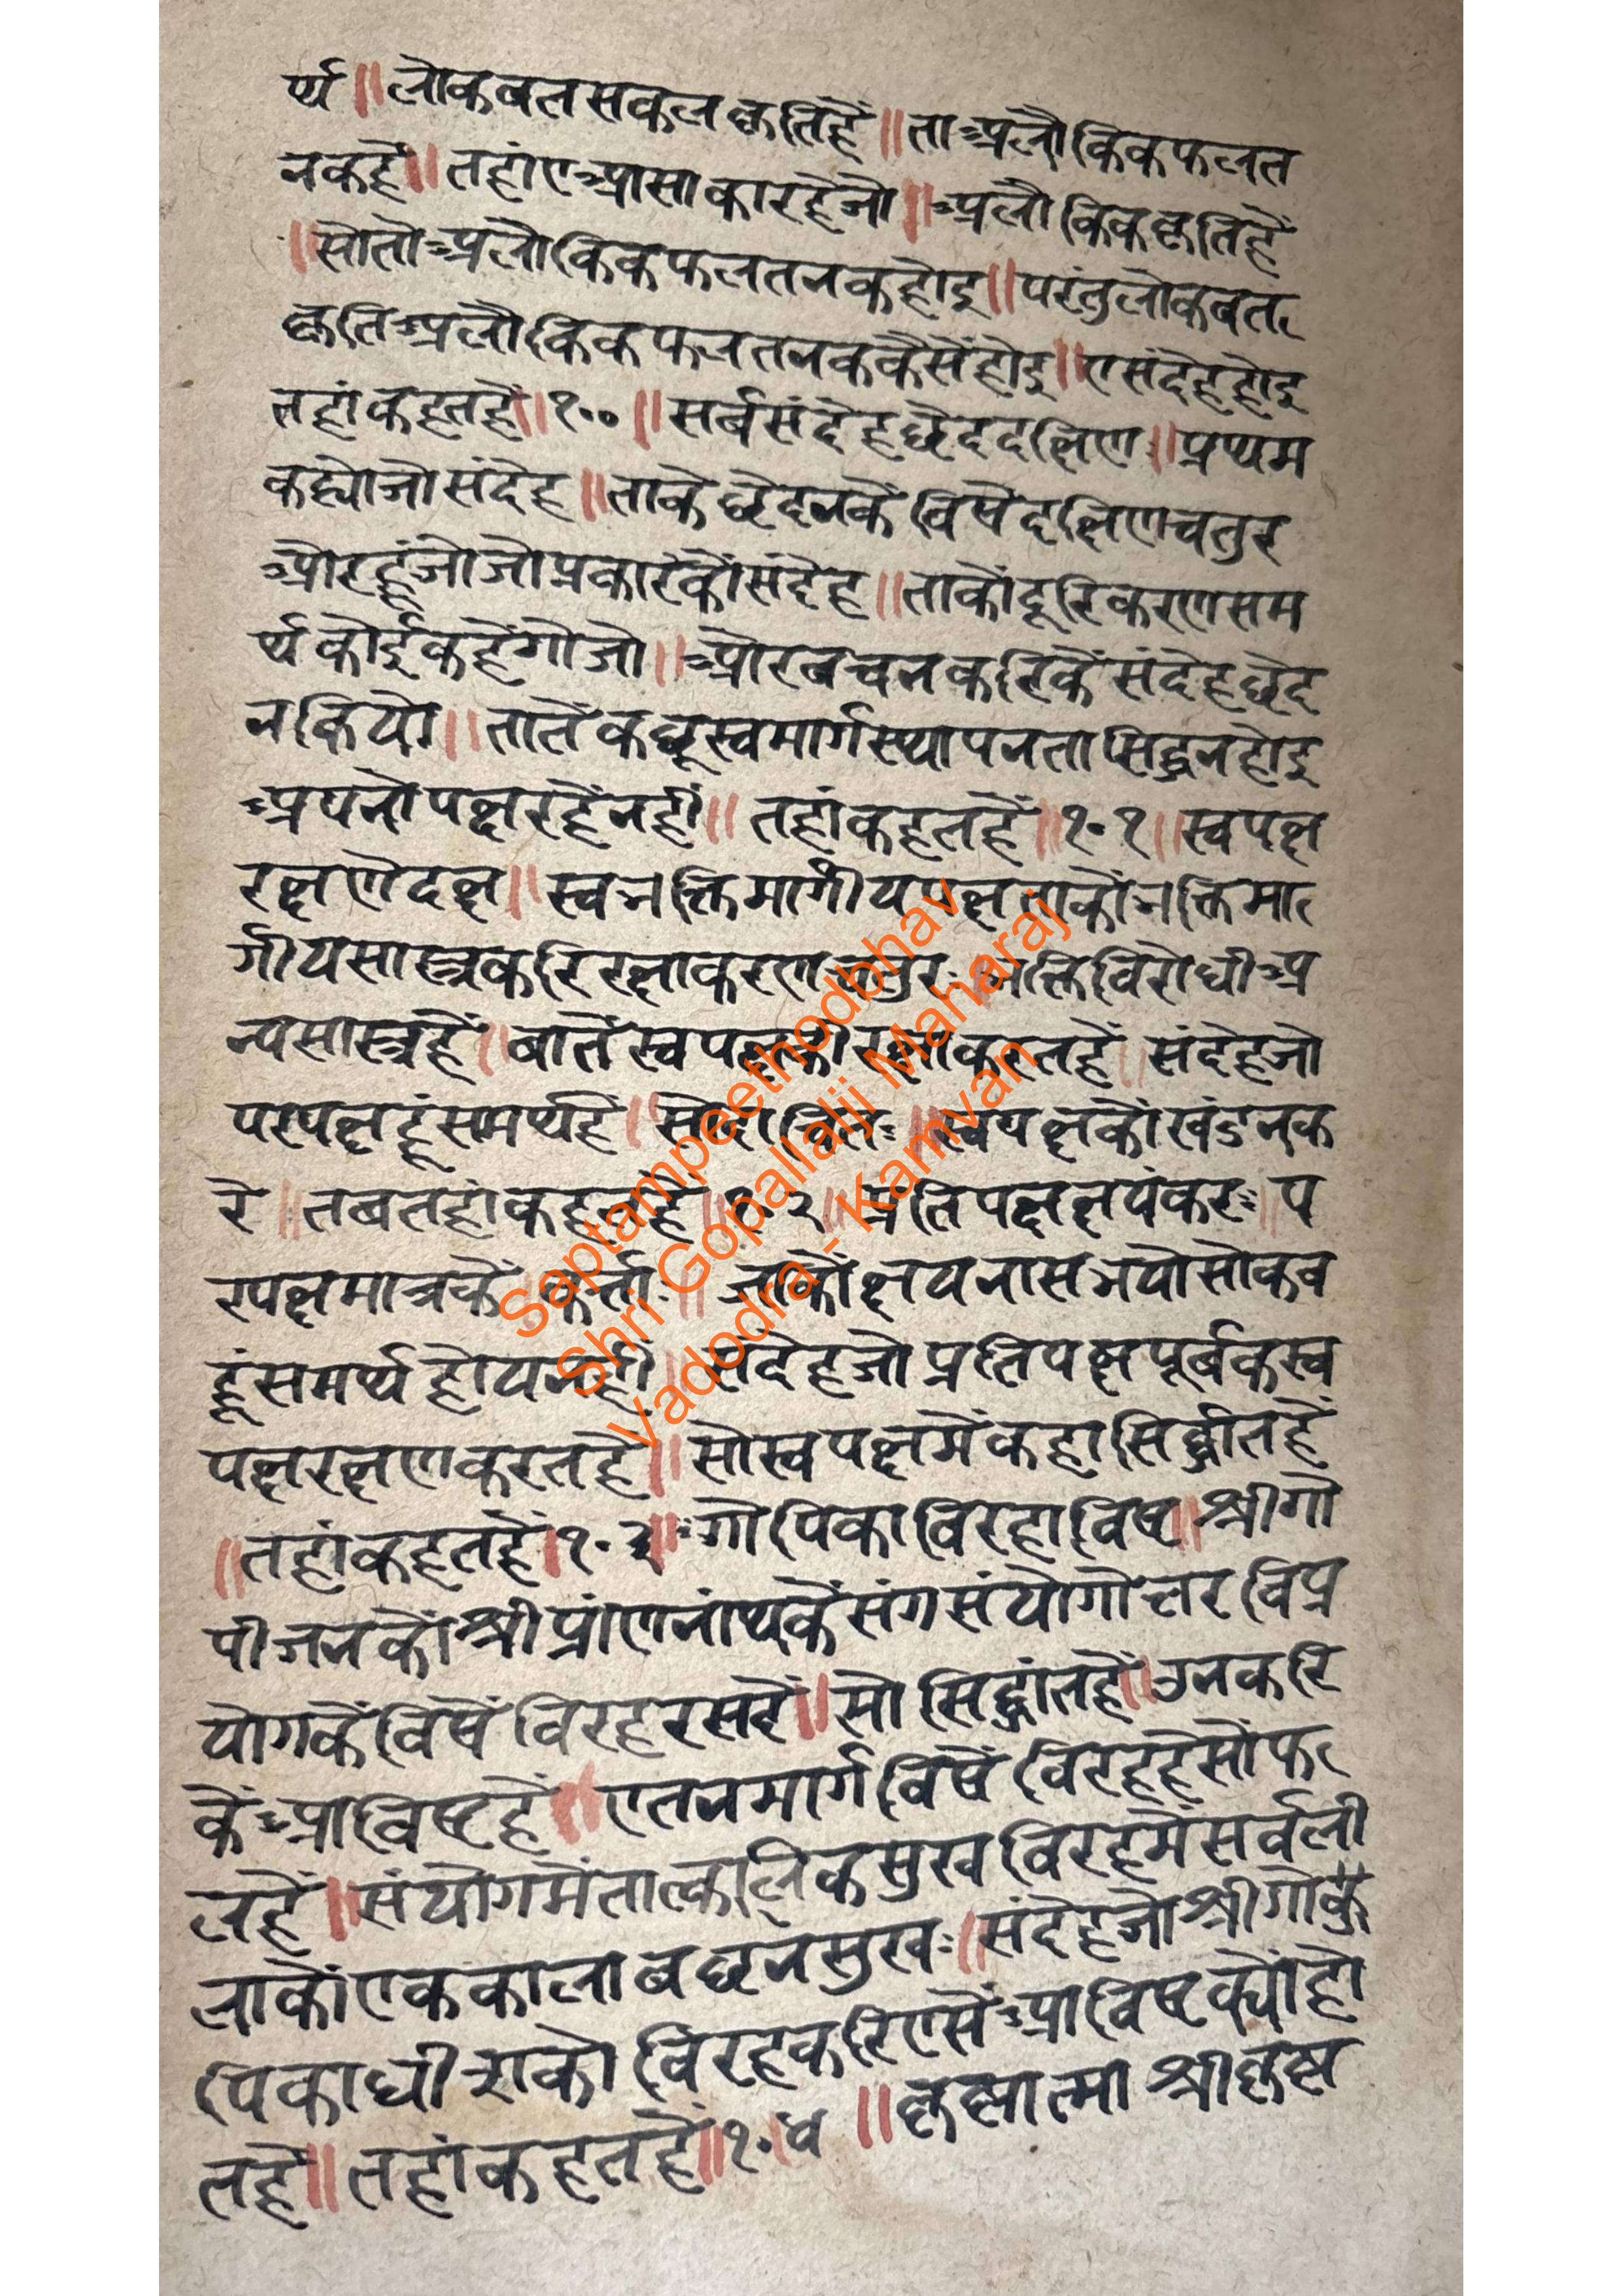 र्थ ॥ लोकवत सकल कृति हैं ॥ ता अलौकिक फलत
नक हैं ॥ तहां ए आसाकार है जो ॥ अलौकिक कृति हैं
॥ सो तो अलौकिक फलतनक होइ ॥ परंतु लोकवत
कृति अलौकिक फलतनक कैसें होइ ॥ ए संदेह होइ
तहां कहत हैं ॥ १०० ॥ सर्बसंदेहछेददक्षिण ॥ प्रथम
कह्यो जो संदेह ॥ ताके छेदनकें विषे दक्षिण चतुर
और हूं जो जो प्रकारकौं संदेह ॥ ताकौं दूरिकरण सम
र्थ कोई कहेंगो जो ॥ और बचन करिकें संदेह छेद
न कियो ॥ तातें कछू स्वमार्गस्थापनता सिद्ध न होइ
अपनो पक्ष रहै नहीं ॥ तहां कहत हैं ॥ १०१ ॥ स्वपक्ष
रक्षणे दक्ष ॥ स्वभक्तिमार्गीय पक्ष ताकौं भक्तिमा
र्गीय सास्त्र करि रक्षाकरण चतुर ॥ भक्तिविरोधी अ
न्य सास्त्र हैं ॥ बातें स्वपक्षकी रक्षा करत हैं ॥ संदेह जो
परपक्ष हूं समर्थ हैं ॥ स्वपक्षकौं खंडन क
रे ॥ तब तहां कहत हैं ॥ १०२ ॥ प्रतिपक्षक्षयंकरः ॥ प
रपक्षमात्रकें कर्त्ता ॥ जाकौं क्षय नास भयो सो कब
हूं समर्थ होय नहीं ॥ संदेह जो प्रतिपक्ष पूर्बक स्व
पक्ष रक्षण करत हैं ॥ सो स्वपक्षमें कहा सिद्धांत हैं
॥ तहां कहत हैं ॥ १०३ ॥ गोपिकाविरहाविष्ट ॥ श्रीगो
पीजनकौं श्रीप्रांणनांथकें संग संयोगोत्तर विप्र
योगकें विषें विरहरस हैं ॥ सो सिद्धांत हैं ॥ उनकरि
कें आविष्ट हैं ॥ एतनमार्ग विषें विरह है सो फ
ल हैं ॥ संयोगमें तात्कालिक सुख विरहमें सर्वली
लाकौं एक कालाबछन सुखः ॥ संदेह जो श्रीगोकु
पिकाधीशको विरह करि एसें आविष्ट क्यों हो
त हैं ॥ तहां कहत हैं ॥ १०४ ॥ कृष्णात्मा श्रीकृष्ण